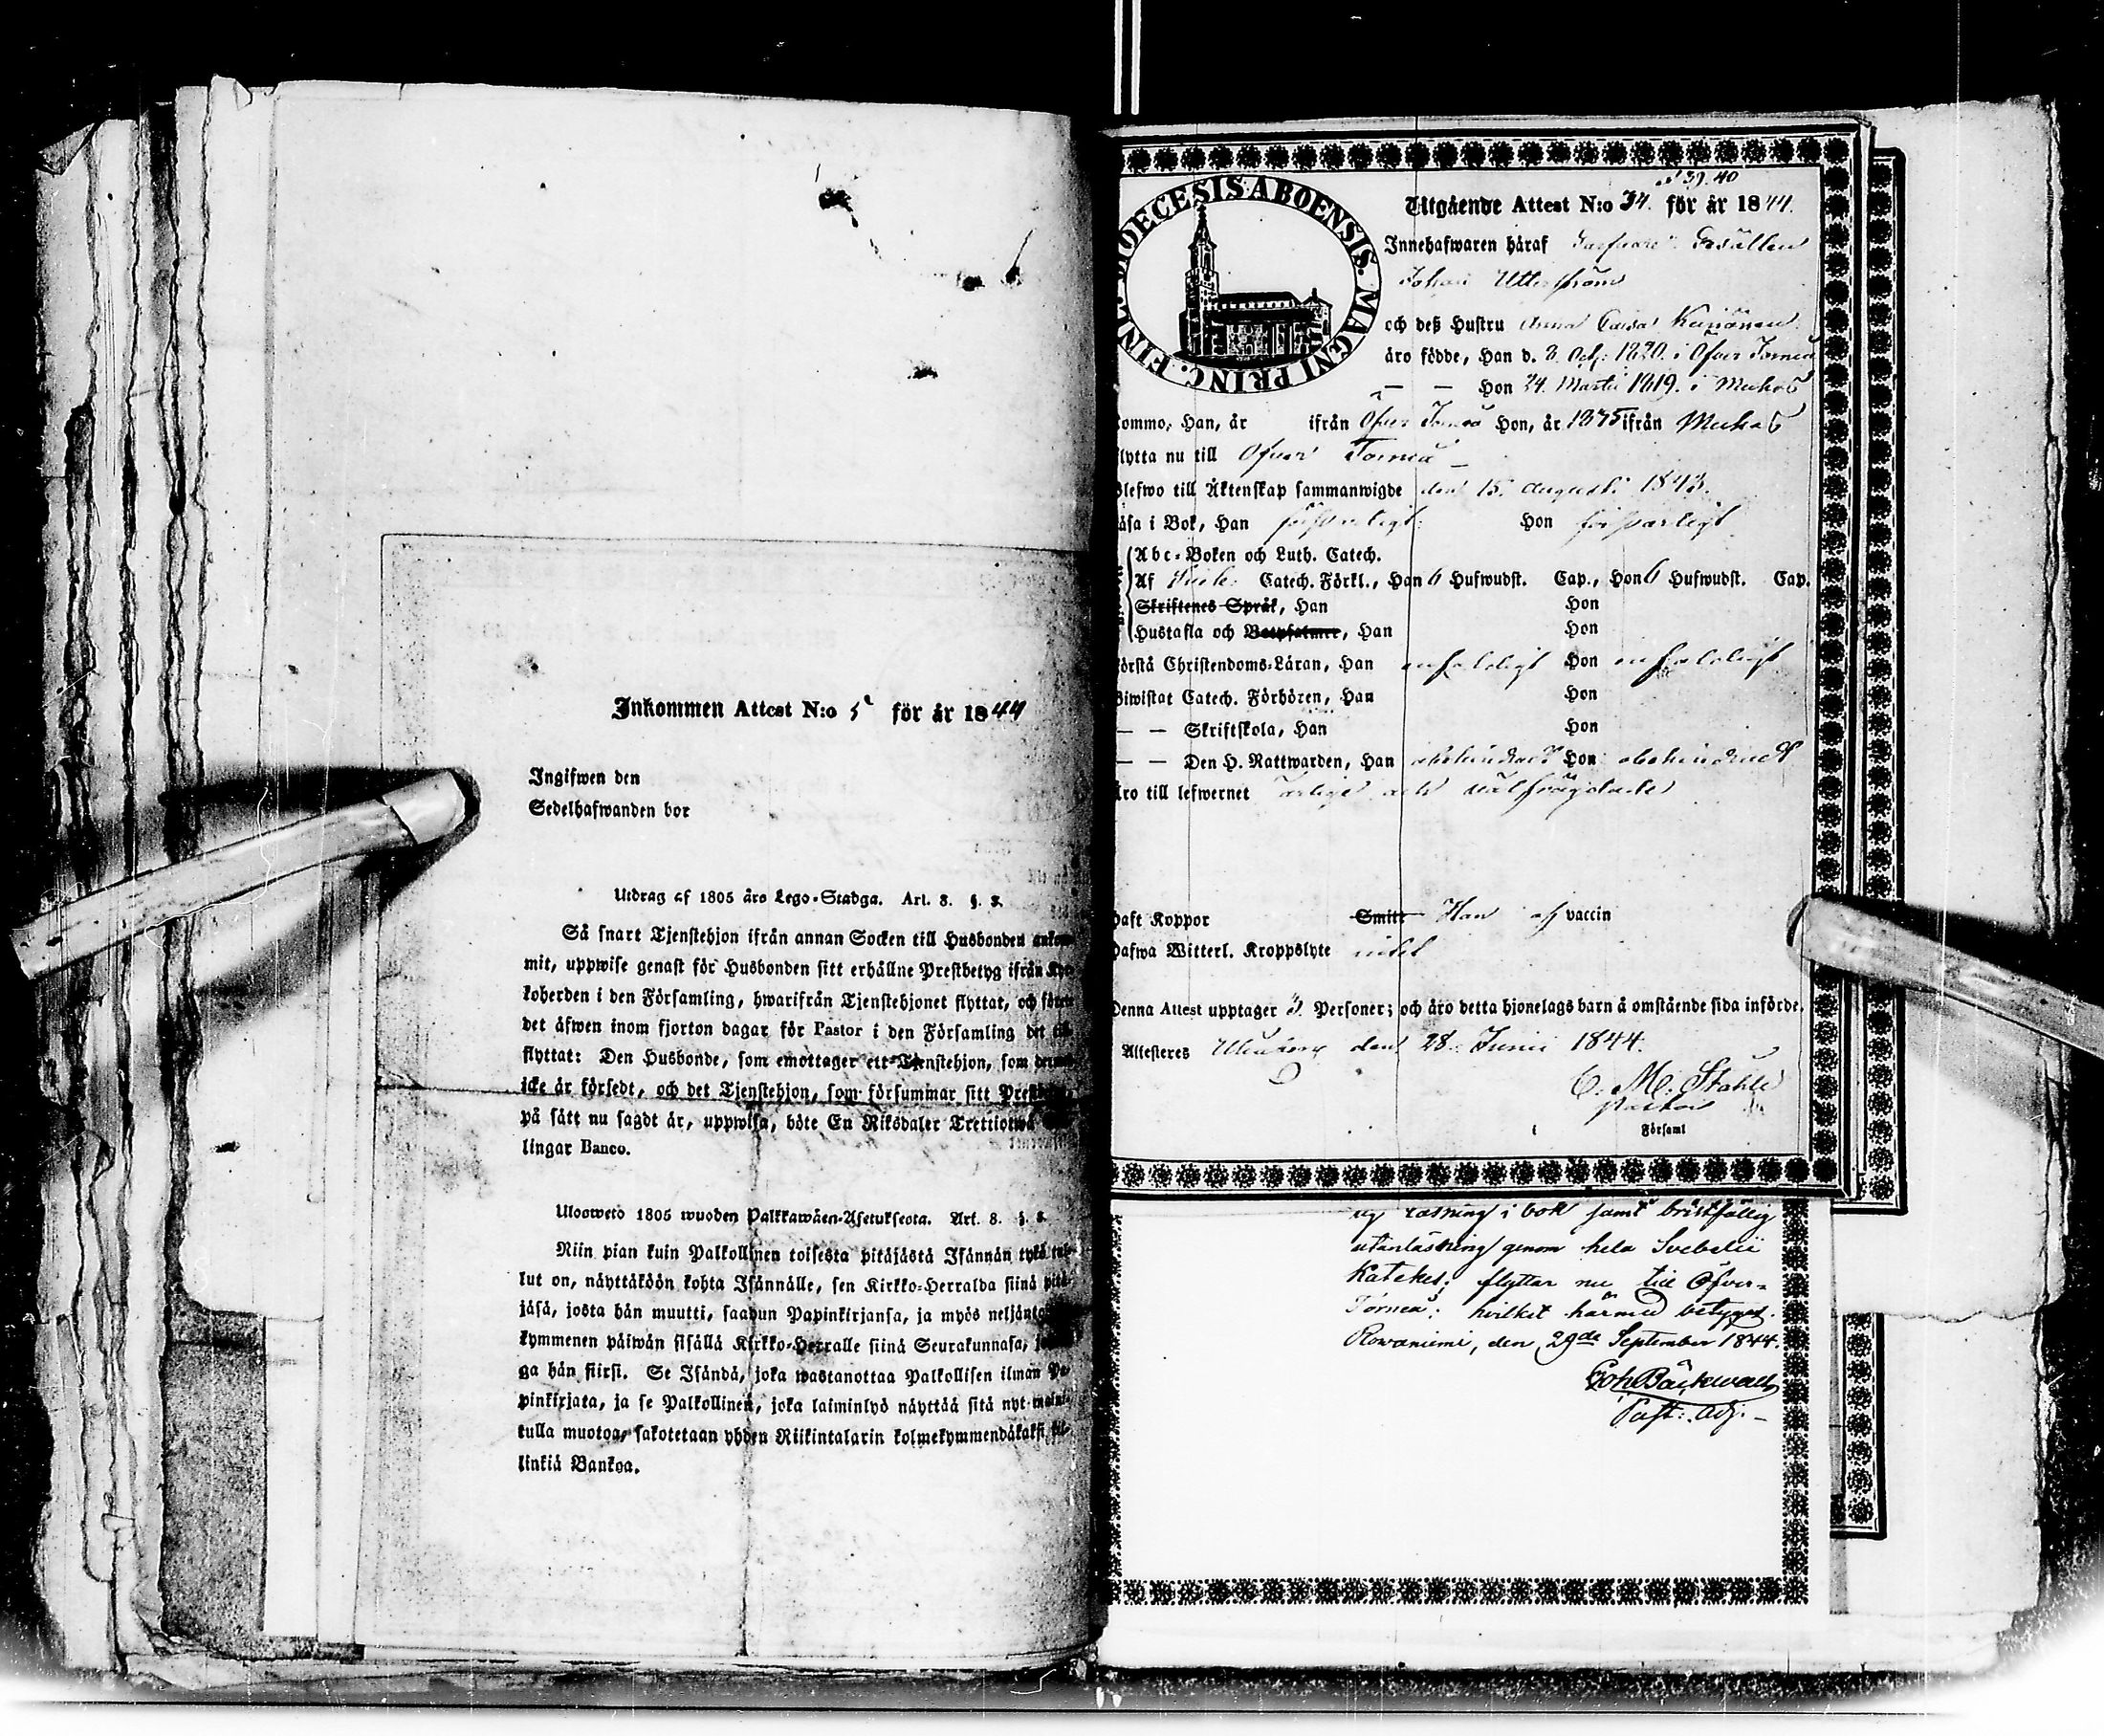 Inkommen Attest N:o 5 för år 1844
Ingifwen den
Sedelhafwanden bor
Utdrag af 1805 års Lego-Stadga. Art. 8. §. 8.
Så snart Tjenstehjon ifrån annan Socken till Husbonden ankom-
mit, uppwise genast för Husbonden sitt erhållne Prestbetyg ifrån Kyr-
koherden i den Församling, hwarifrån Tjenstehjonet flyttat, och förete
det äfwen inom fjorton dagar för Pastor i den Församling det till-
flyttat: Den Husbonde, som emottager ett Tjenstehjon, som dermed
icke är försedt, och det Tjenstehjon, som försummar sitt Prestbetyg,
på sätt nu sagdt är, uppwisa, böte En Riksdaler Trettiotwå
lingar Banco.
Uloswetö 1805 wuoden Palkkawäen-Asetuksesta. Art. 8. §. 8.
Niin pian kuin Palkollinen toisesta pitäjästä Isännän tykö tul-
lut on, näyttäköön kohta Isännälle, sen Kirkko-Herralda siinä pitä-
jäsä, josta hän muutti, saadun Papinkirjansa, ja myös neljäntoista
kymmenen päiwän sisällä Kirkko-Herralle siinä Seurakunnasa, jo
ga hän siirsi. Se Isändä, joka wastanottaa Palkollisen ilman Pa-
pinkirjata, ja se Palkollinen, joka laiminlyö näyttää sitä nyt maini-
tulla muotoa, sakotetaan yhden Riikintalarin kolmekymmendäkaksi kil-
linkiä Bankoa.
DIOECESIS ABOENSIS. MAGNI PRINC. FINL.
39. 40
Utgående Attest N:o 34. för år 1844.
Innehafwaren häraf Gesällen
Johan Utterström
och deß Hustru Anna Caisa
äro födde, Han d. 8 Oct: 1820. i Öfver Torneå
— — Hon 24. Martii 1819. i Muhos
kommo, Han, år ifrån Öfver Torneå Hon, år 1835 ifrån Muhos
flytta nu till Öfver Torneå
Blefwo till Äktenskap sammanwigde den 15. Augusti 1843.
Läsa i Bok, Han försvarligt Hon försvarligt
Abc-Boken och Luth. Catech.
Af Sveb: Catech. Förkl., Han 6 Hufwudst. Cap., Hon 6 Hufwudst. Cap.
Skriftenes Språk, Han Hon
Hustafla och Botpsalmer, Han Hon
Förstå Christendoms-Läran, Han enfaldigt Hon enfaldigt
Biwistat Catech. Förhören, Han Hon
— — Skriftskola, Han Hon
— — Den H. Nattwarden, Han obehindrad Hon obehindrad
Äro till lefwernet ärlige och välfrägdade
Haft Koppor Smitt Han af vaccin
Hafwa Witterl. Kroppslyte intet
Denna Attest upptager 3 Personer; och äro detta hjonelags barn å omstående sida införde.
Attesteras Uleåborg den 28. Junii 1844.
C. M. Ståhle
Pastor
Församl
läsning i bok samt bristfällig
utanläsning genom hela Svebelii
Katekes; flyttar nu till Öfver-
Torneå: hvilket härmed betygas.
Rowaniemi, den 29de September 1844.
Joh Bäckwall
Past: Adj.